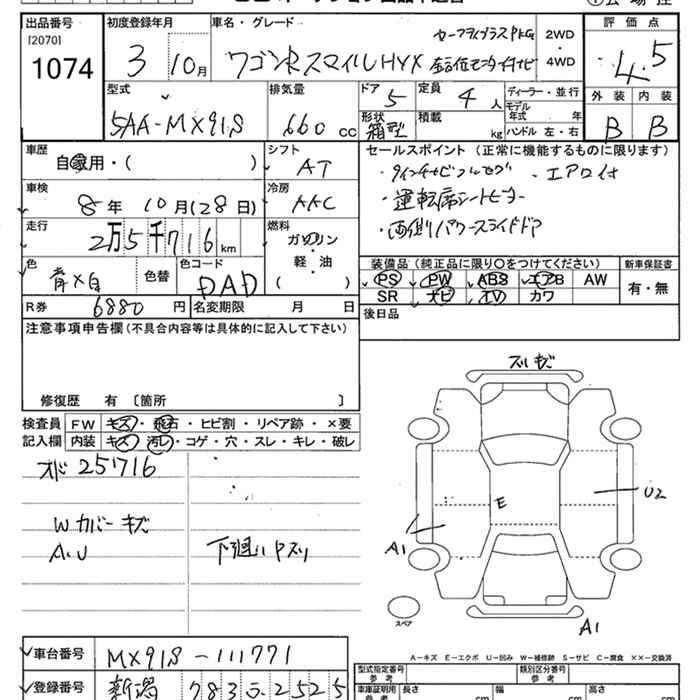 出品番号
[2070]
1074
初度登録年月
3 10月
車名・グレード
セーフティプラスPKG
ワゴンR スマイル HYX
2WD
・
4WD
評価点
4.5
外装 内装
B B
型式
5AA-MX91S
排気量
660 cc
ドア 5
定員 4 人
形状 箱型
積載 kg
ディーラー・並行
モデル年式 年式
ハンドル 左・右
車歴
自家用・( )
シフト AT
車検
8年 10月(28日)
冷房 AAC
走行
2万5千716km
燃料
ガソリン
軽・油
( )
色
青×白
色替
色コード
DAD
R券 6880 円
名変期限 月 日
セールスポイント(正常に機能するものに限ります)
・エアロ付
・運転席シートヒーター
・両側パワースライドドア
装備品(純正品に限り○をつけてください)
PS PW ABS エアB AW
SR ナビ TV カワ
新車保証書
有・無
後日品
注意事項申告欄(不具合内容等は具体的に記入して下さい)
修復歴 有〔箇所 〕
検査員 FW キズ・飛石・ヒビ割・リペア跡・×要
記入欄 内装 キズ・汚レ・コゲ・穴・スレ・キレ・破レ
オド 25716
Wカバーキズ
A.U
下廻りサスリ
スリキズ
E
U2
A1
A1
スペア
A-キズ E-エクボ U-凹み W-補修跡 S-サビ C-腐食 ××-交換済
車台番号 MX91S-111771
登録番号 新潟
型式指定番号
参考
類別区分番号
参考
車庫証明用
参考
長さ cm
幅 cm
高さ cm